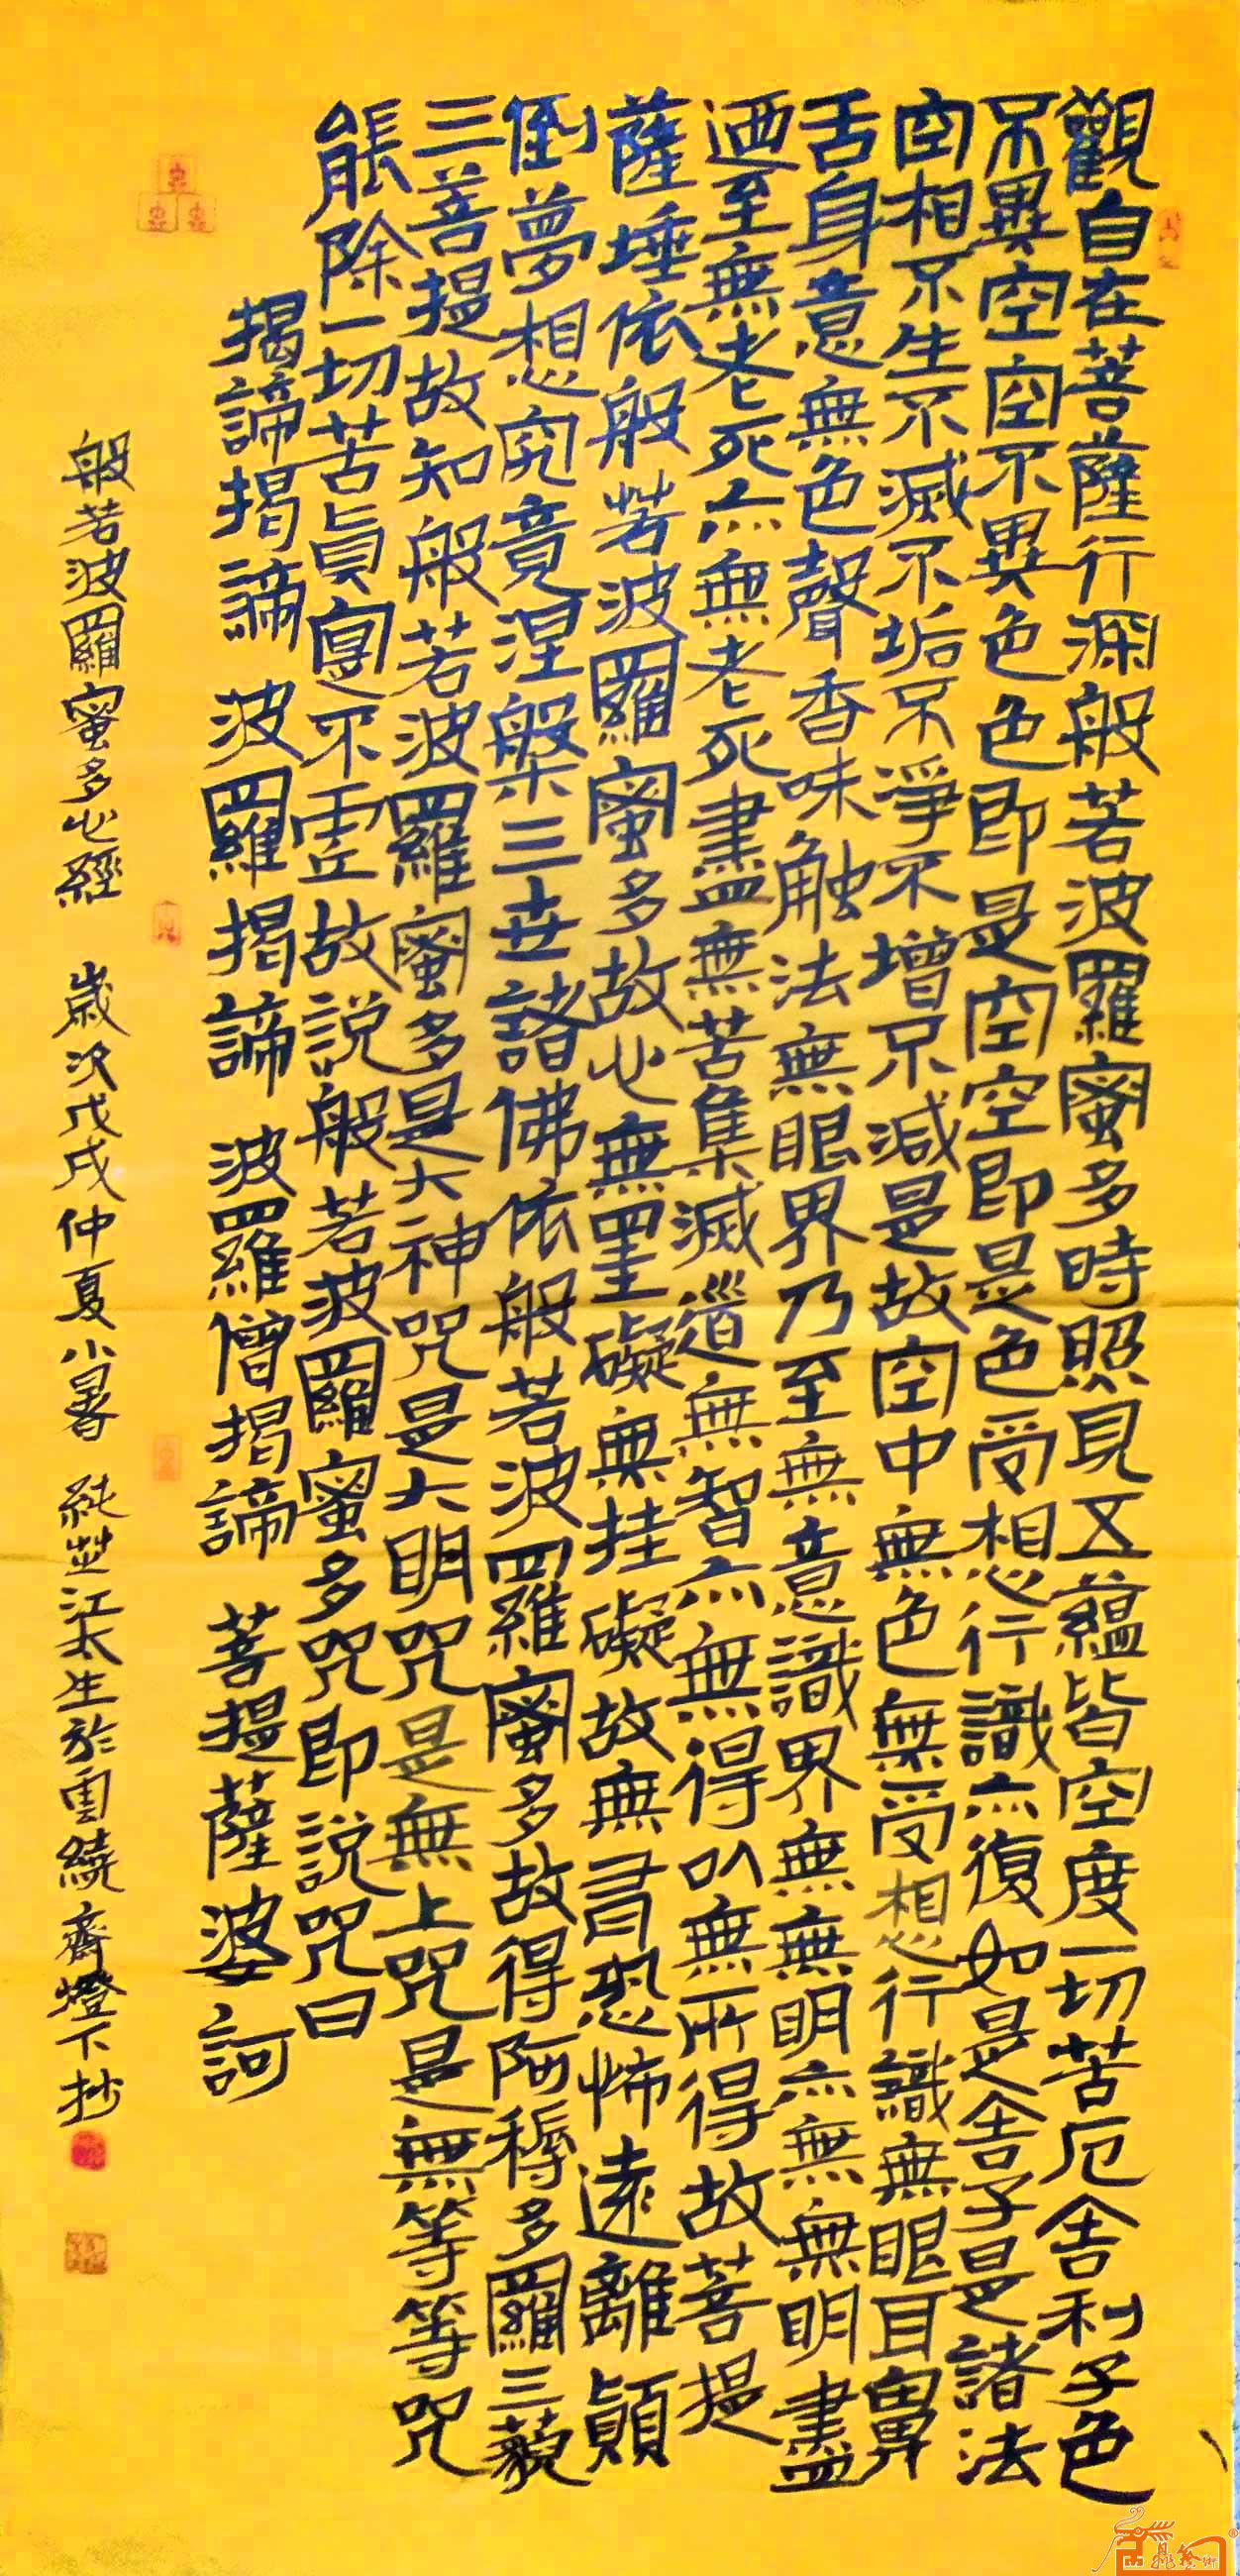 觀自在菩薩行深般若波羅蜜多時照見五蘊皆空度一切苦厄舍利子色
不異空空不異色色即是空空即是色受想行識亦復如是舍子是諸法
空相不生不滅不垢不淨不增不減是故空中無色無受想行識無眼耳鼻
舌身意無色聲香味触法無眼界乃至無意識界無無明亦無無明盡
迺至無老死亦無老死盡無苦集滅道無智亦無得以無所得故菩提
薩埵依般若波羅蜜多故心無罣礙無挂礙故無有恐怖遠離顛
倒夢想究竟涅槃三世諸佛依般若波羅蜜多故得阿耨多羅三藐
三菩提故知般若波羅蜜多是大神咒是大明咒是無上咒是無等等咒
能除一切苦真實不虛故說般若波羅蜜多咒即說咒曰
揭諦揭諦 波羅揭諦 波羅僧揭諦 菩提薩婆訶
般若波羅蜜多心經 歲次戊戌仲夏小暑 純芷江太生於雲繞齋燈下抄